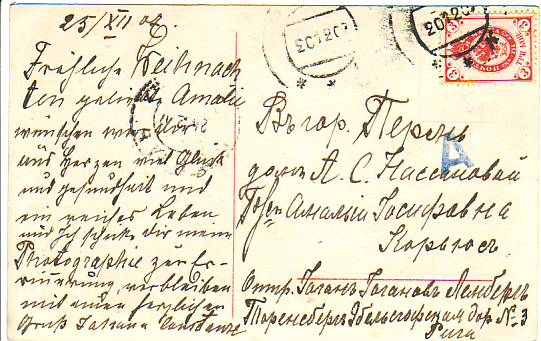 25/XII 02.
Fröhliche Weihnach
ten geliebte Amalie
wünschen wir dir
aus Herzen viel Glück
und gesundheit und
ein reiches Leben
und Ich schicke dir meine
Photographie zur Er-
innerung verbleiben
mit einen herzlichen
Gruß Tatiana
202 03
202 03
3 3
Въ гор. Пермь
домъ А. С. Нассановой
Амаліи Іосифовна
Корьюсъ
A
Отпр. Іоганъ Іогановъ Ленбергъ
Торенсбергъ дор № 3
Рига